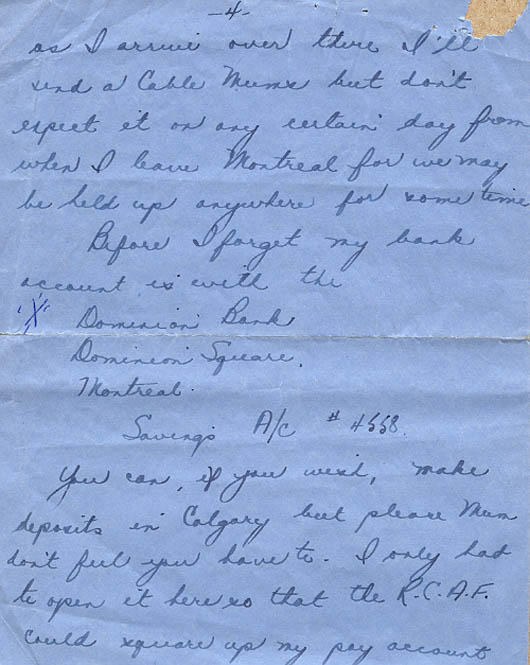 -4-
as I arrive over there I'll
send a Cable Mums but don't
expect it on any certain day from
when I leave Montreal for we may
be held up anywhere for some time
Before I forget my bank
account is with the
"X" Dominion Bank
Dominion Square,
Montreal.
Savings A/c # 4558.
You can, if you wish, make
deposits in Calgary but please Mum
don't feel you have to. I only had
to open it here so that the R.C.A.F.
could square up my pay account